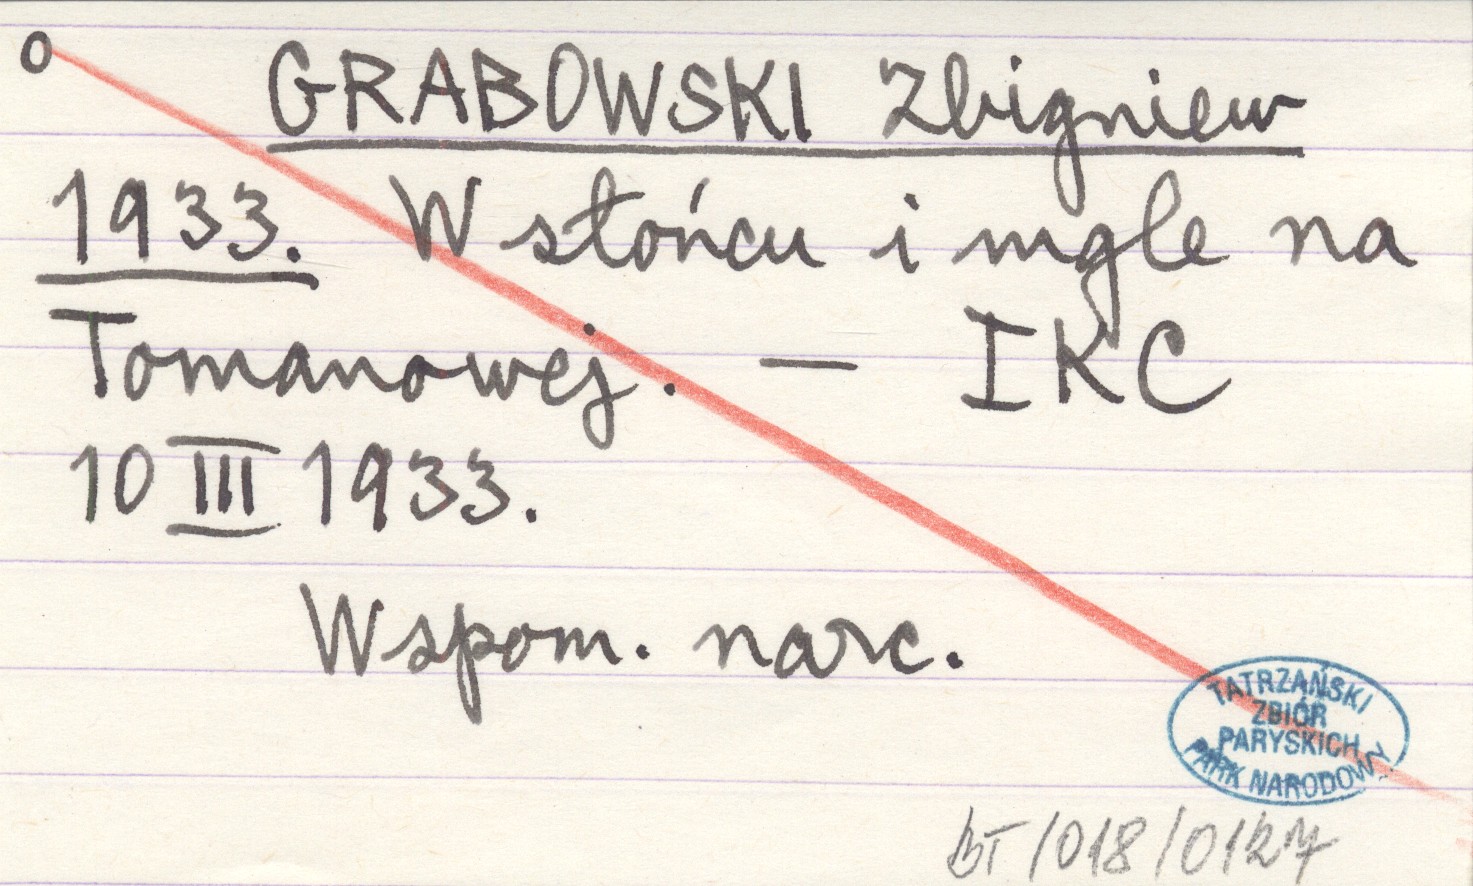 o GRABOWSKI Zbigniew
1933. W słońcu i mgle na
Tomanowej. — IKC
10 III 1933.
Wspom. narc.
TATRZAŃSKI
ZBIÓR
PARYSKICH
PARK NARODOWY
BT/018/0127